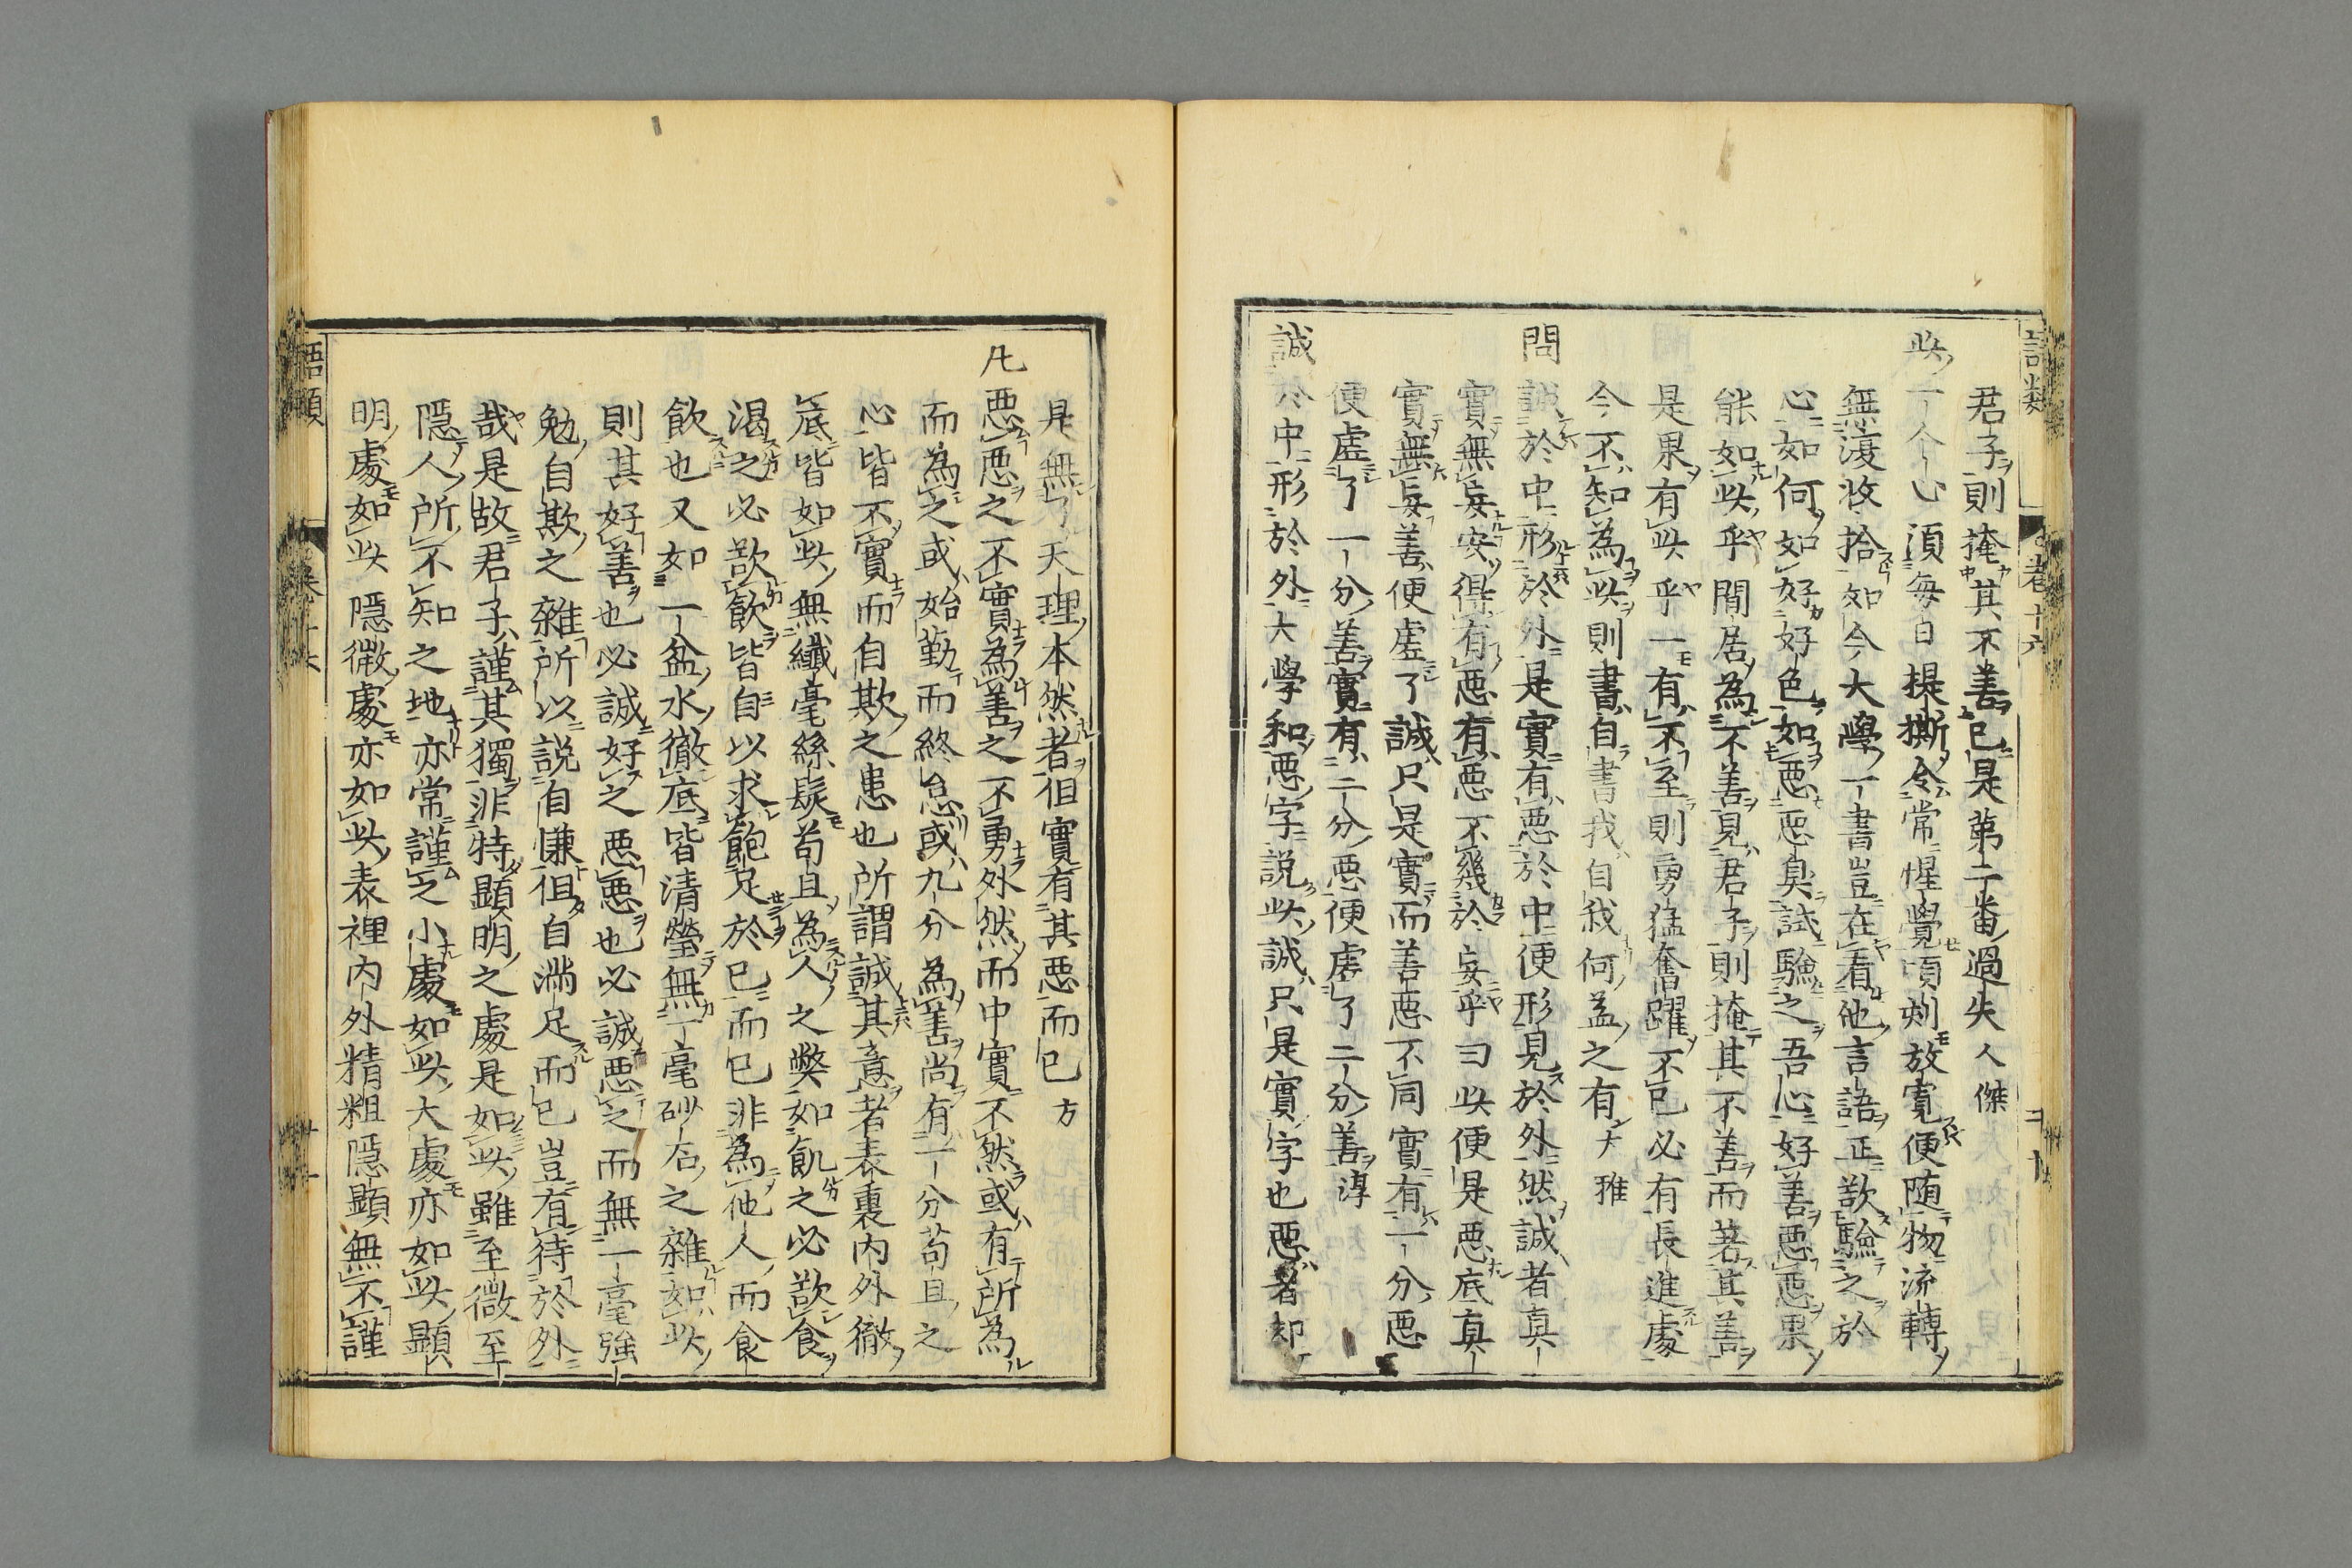 語類　卷十六　二十
君子則掩其不善已是第二番過失人傑
此一个心須每日提撕令常惺覺頃刻放寬便随物流轉
無復收拾如今大學一書豈在看他言語正欲驗之於
心如何如好好色如惡惡臭試驗之吾心好善惡惡果
能如此乎閒居為不善見君子則掩其不善而著其善
是果有此乎一有不至則勇猛奮躍不已必有長進處
今不知為此則書自書我自我何益之有大雅
問誠於中形於外是實有惡於中便形見於外然誠者真
實無妄安得有惡有惡不幾於妄乎曰此便是惡底真
實無妄善便虛了誠只是實而善惡不同實有一分惡
便虛了一分善實有二分惡便虛了二分善淳
誠於中形於外大學和惡字說此誠只是實字也惡者却
是無了天理本然者但實有其惡而已方
凡惡惡之不實為善之不勇外然而中實不然或有所為
而為之或始勤而終怠或九分為善尚有一分苟且之
心皆不實而自欺之患也所謂誠其意者表裏内外徹
底皆如此無纖毫絲髮苟且為人之弊如飢之必欲食
渴之必欲飲皆自以求飽足於已而已非為他人而食
飲也又如一盆水徹底皆清瑩無一毫砂石之雜如此
則其好善也必誠好之惡惡也必誠惡之而無一毫強
勉自欺之雜所以說自慊但自滿足而已豈有待於外
哉是故君子謹其獨非特顯明之處是如此雖至微至
隱人所不知之地亦常謹之小處如此大處亦如此顯
明處如此隱微處亦如此表裡内外精粗隱顯無不謹
語類　卷十六　廿一